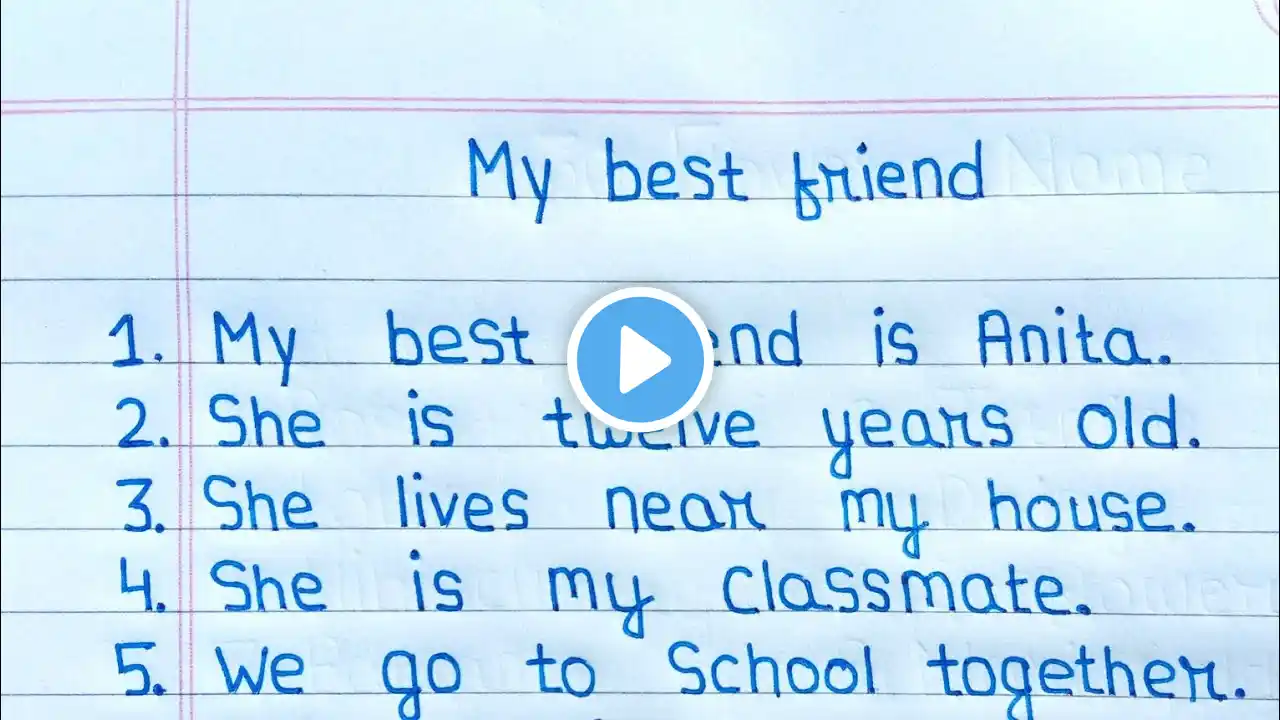 My best friend
1. My best end is Anita.
2. She is twelve years old.
3. She lives near my house.
4. She is my classmate.
5. We go to School together.